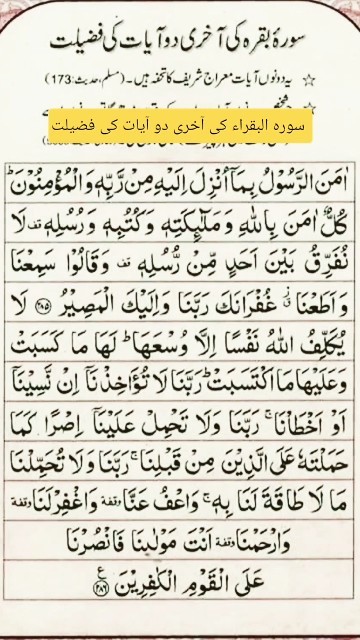 سورۂ بقرہ کی آخری دو آیات کی فضیلت
☆ یہ دونوں آیات معراج شریف کا تحفہ ہیں۔ (مسلم، حدیث: 173)
سورہ البقراء کی آخری دو آیات کی فضیلت
اٰمَنَ الرَّسُوْلُ بِمَاۤ اُنْزِلَ اِلَیْهِ مِنْ رَّبِّهٖ وَ الْمُؤْمِنُوْنَؕ
كُلٌّ اٰمَنَ بِاللّٰهِ وَ مَلٰٓىِٕكَتِهٖ وَ كُتُبِهٖ وَ رُسُلِهٖ قف لَا
نُفَرِّقُ بَیْنَ اَحَدٍ مِّنْ رُّسُلِهٖ قف وَ قَالُوْا سَمِعْنَا
وَ اَطَعْنَا ق٘ غُفْرَانَكَ رَبَّنَا وَ اِلَیْكَ الْمَصِیْرُ ﴿۲۸۵﴾ لَا
یُكَلِّفُ اللّٰهُ نَفْسًا اِلَّا وُسْعَهَاؕ لَهَا مَا كَسَبَتْ
وَ عَلَیْهَا مَا اكْتَسَبَتْؕ رَبَّنَا لَا تُؤَاخِذْنَاۤ اِنْ نَّسِیْنَاۤ
اَوْ اَخْطَاْنَاۚ رَبَّنَا وَ لَا تَحْمِلْ عَلَیْنَاۤ اِصْرًا كَمَا
حَمَلْتَهٗ عَلَى الَّذِیْنَ مِنْ قَبْلِنَاۚ رَبَّنَا وَ لَا تُحَمِّلْنَا
مَا لَا طَاقَةَ لَنَا بِهٖۚ وَ اعْفُ عَنَّا وقفة وَ اغْفِرْ لَنَا وقفة
وَ ارْحَمْنَا وقفة اَنْتَ مَوْلٰىنَا فَانْصُرْنَا
عَلَى الْقَوْمِ الْكٰفِرِیْنَ ﴿۲۸۶﴾ ع